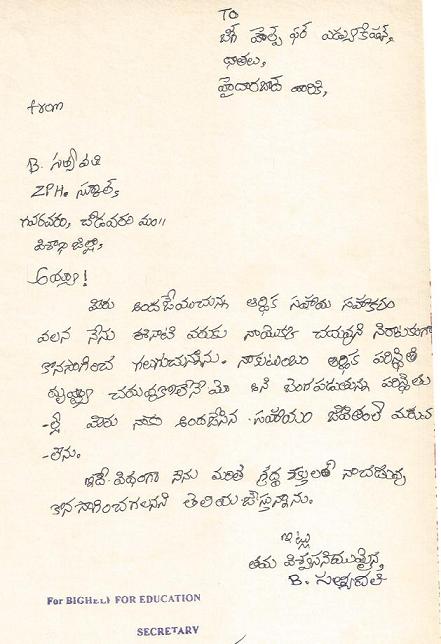 TO
బిగ్ హెల్ప్ ఫర్ ఎడ్యుకేషన్,
దాతలు,
హైదారబాద్ వారికి,
from
B. సత్యవతి
ZPH. స్కూల్,
గవరవరం, చోడవరం మం॥
విశాఖ జిల్లా,
అయ్యా!
మీరు అందజేసుచున్న ఆర్థిక సహాయ సహకారం
వలన నేను ఈనాటి వరకు నాయొక్క చదువుని నిరాటకుగా
కొనసాగించ గలుగుచున్నాను. నాకుటుంబ ఆర్థిక పరిస్థితి
దృష్ట్యా చదువుకోలేనేమో అని బెంగపడుతున్న పరిస్థితు
-ల్లో మీరు నాకు అందజేసిన సహాయం జీవితంలో మరువ
-లేను.
ఇదే విధంగా నేను మరింత శ్రద్ధ శక్తులతో నాచదువు
కొన సాగించగలనని తెలియ జేస్తున్నాను.
ఇట్లు
తమ విశ్వసనీయురాలైన,
B. సత్యవతి
For BIGHELP FOR EDUCATION
SECRETARY